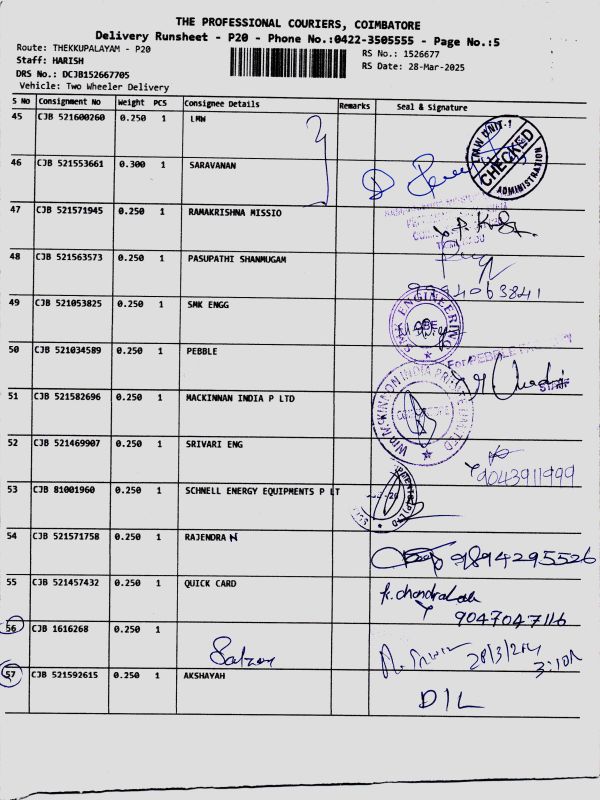 THE PROFESSIONAL COURIERS, COIMBATORE
Delivery Runsheet - P20 - Phone No.:0422-3505555 - Page No.:5
Route: THEKKUPALAYAM - P20
RS No.: 1526677
Staff: HARISH
RS Date: 28-Mar-2025
DRS No.: DCJB152667705
Vehicle: Two Wheeler Delivery
S No Consignment No Weight PCS Consignee Details Remarks Seal & Signature
45 CJB 521600260 0.250 1 LMW
LMW UNIT-1 CHECKED ADMINISTRATION
46 CJB 521553661 0.300 1 SARAVANAN
47 CJB 521571945 0.250 1 RAMAKRISHNA MISSIO
48 CJB 521563573 0.250 1 PASUPATHI SHANMUGAM
9994063841
49 CJB 521053825 0.250 1 SMK ENGG
SMK ENGINEERING CBE
50 CJB 521034589 0.250 1 PEBBLE
For PEBBLE
51 CJB 521582696 0.250 1 MACKINNAN INDIA P LTD
MCKINNON INDIA PRIVATE LIMITED
52 CJB 521469907 0.250 1 SRIVARI ENG
9043911999
53 CJB 81001960 0.250 1 SCHNELL ENERGY EQUIPMENTS P LT
54 CJB 521571758 0.250 1 RAJENDRA N
9894295526
55 CJB 521457432 0.250 1 QUICK CARD
9047047116
56 CJB 1616268 0.250 1
28/3/20
3:10
57 CJB 521592615 0.250 1 AKSHAYAH
D/L